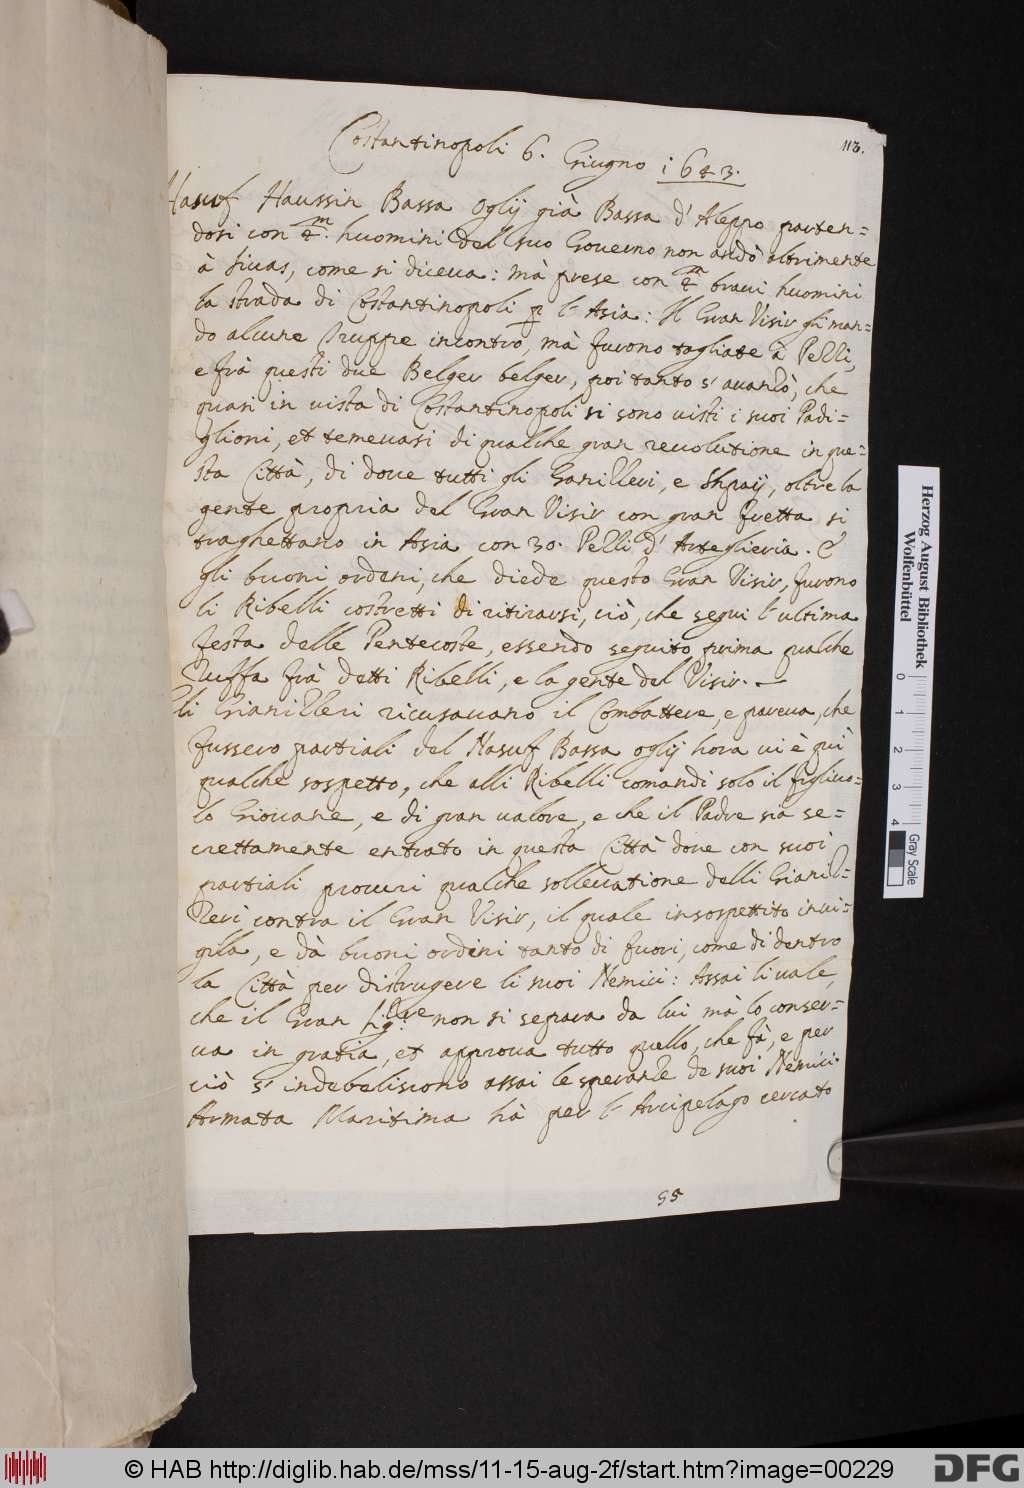 113.
Costantinopoli 6. Giugno 1643.
Nasuf Haussin Bassa Oglij già Bassa d'Aleppo parten=
dosi con 4.m huomini del suo Governo non andò altrimente
à Sivas, come si diceua: mà prese con 4m braui huomini
la strada di Costantinopoli p l'Asia: Il Gran Visir gli man=
dò alcune Truppe incontro, mà furono tagliate à Pezzi,
e frà questi due Belger belger, poi tanto s'auanzò, che
quasi in uista di Costantinopoli si sono uisti i suoi Padi=
glioni, et temeuasi di qualche gran reuolutione in que=
sta Città, di doue tutti gli Gianizzeri, e Shpaij, oltre la
gente propria del Gran Visir con gran fretta si
traghettano in Asia con 30. Pezzi d'Arteglieria. E
gli buoni ordeni, che diede questo Gran Visir, furono
li Ribelli costretti di ritirarsi, ciò, che segui l'ultima
festa delle Pentecoste, essendo seguito prima qualche
Zuffa frà detti Ribelli, e la gente del Visir.
Gli Gianizzeri ricusauano il Combattere, e pareua, che
fussero partiali del Nasuf Bassa oglij hora ui è quì
qualche sospetto, che alli Ribelli comandi solo il figliuo=
lo Giouane, e di gran ualore, e che il Padre sia se=
crettamente entrato in questa Città doue con suoi
partiali procuri qualche solleuatione delli Gianiz=
zeri contra il Gran Visir, il quale insospettito inui=
gila, e dà buoni ordini tanto di fuori, come di dentro
la Città per distrugere li suoi Nemici: Assai li uale,
che il Gran Sig.re non si separa da lui mà lo conser=
ua in gratia, et approua tutto quello, che fà, e per
ciò s'indebeliscono assai le speranze de suoi Nemici.
Armata Maritima hà per l'Arcipelago cercato
95
Herzog August Bibliothek
Wolfenbüttel
0 1 2 3 4
Gray Scale
© HAB http://diglib.hab.de/mss/11-15-aug-2f/start.htm?image=00229
DFG